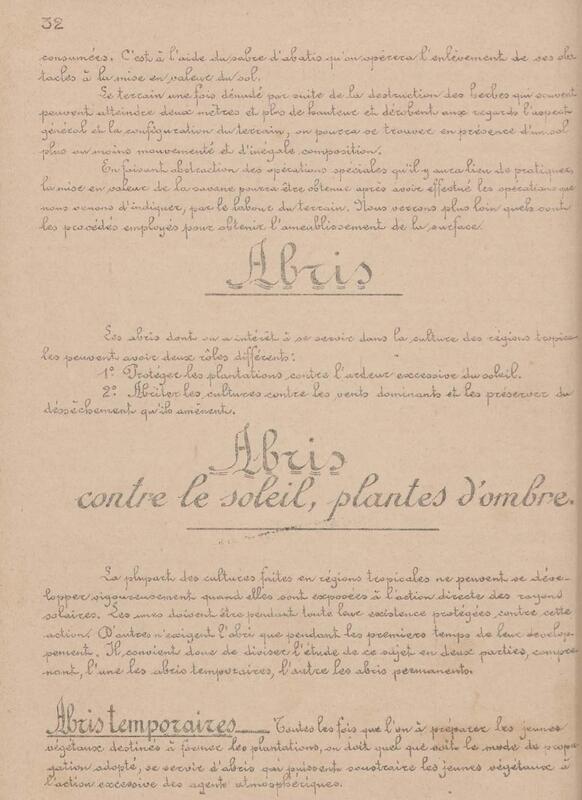 32
consumées. C'est à l'aide du sabre d'abatis qu'on opérera l'enlèvement de ses obs
tacles à la mise en valeur du sol.
Le terrain une fois dénudé par suite de la destruction des herbes qui souvent
peuvent atteindre deux mètres et plus de hauteur et dérobent aux regards l'aspect
général et la configuration du terrain, on pourra se trouver en présence d'un sol
plus ou moins mouvementé et d'inégale composition.
En faisant abstraction des opérations spéciales qu'il y aura lieu de pratiquer,
la mise en valeur de la savane pourra être obtenue après avoir effectué les opérations que
nous venons d'indiquer, par le labour du terrain. Nous verrons plus loin quels sont
les procédés employés pour obtenir l'ameublissement de la surface.
Abris
Les abris dont on a intérêt à se servir dans la culture des régions tropica
les peuvent avoir deux rôles différents:
1º. Protéger les plantations contre l'ardeur excessive du soleil.
2º. Abriter les cultures contre les vents dominants et les préserver du
déssèchement qu'ils amènent.
Abris
contre le soleil, plantes d'ombre.
La plupart des cultures faites en régions tropicales ne peuvent se déve-
lopper vigoureusement quand elles sont exposées à l'action directe des rayons
solaires. Les unes doivent être pendant toute leur existence protégées contre cette
action. D'autres n'exigent l'abri que pendant les premiers temps de leur dévelop-
pement. Il convient donc de diviser l'étude de ce sujet en deux parties, compre
nant, l'une les abris temporaires, l'autre les abris permanents.
Abris temporaires — Toutes les fois que l'on à préparer les jeunes
végétaux destinés à former les plantations, on doit quel que soit le mode de propa
gation adopté, se servir d'abris qui puissent soustraire les jeunes végétaux à
l'action excessive des agent atmosphériques.